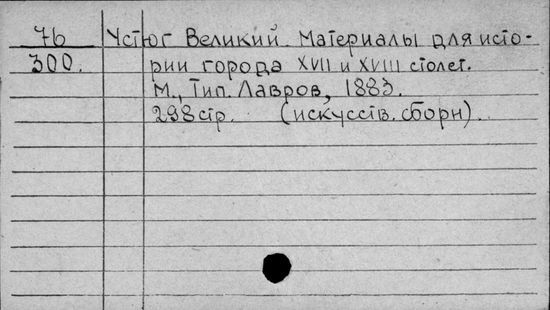 76 Устюг Великий. Материалы для исто-
300. рии города XVII и XVIII столет.
М., Тип. Лавров, 1883.
298 стр. (искусств. сборн).